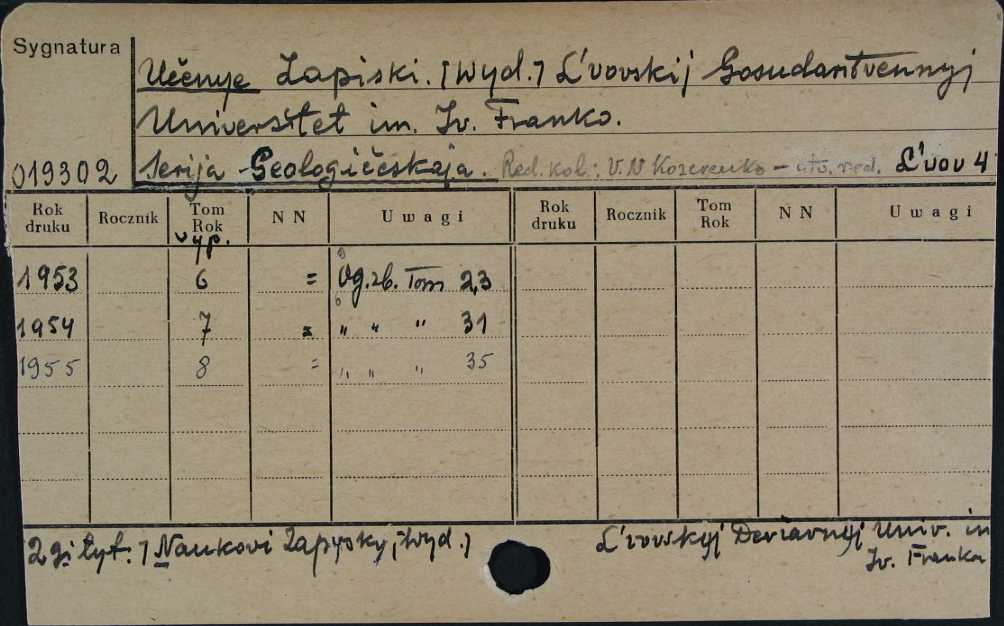 Sygnatura
Učenye Zapiski. [Wyd.] L'vovskij Gosudarstvennyj
Universitet im. Iv. Franko.
019302 Serija Geologičeskaja. Red. kol.: V. N Kozerenko - otv. red. L'vov 4
Rok druku Rocznik Tom Rok N N Uwagi Rok druku Rocznik Tom Rok N N Uwagi
vyp.
1953 6 = Og. zb. Tom 23
1954 7 = " " " 31
1955 8 = " " " 35
2gi tyt. ] Naukovi Zapysky, [Wyd.] L'vovskyj Deržavnyj Univ. im
Iv. Franka